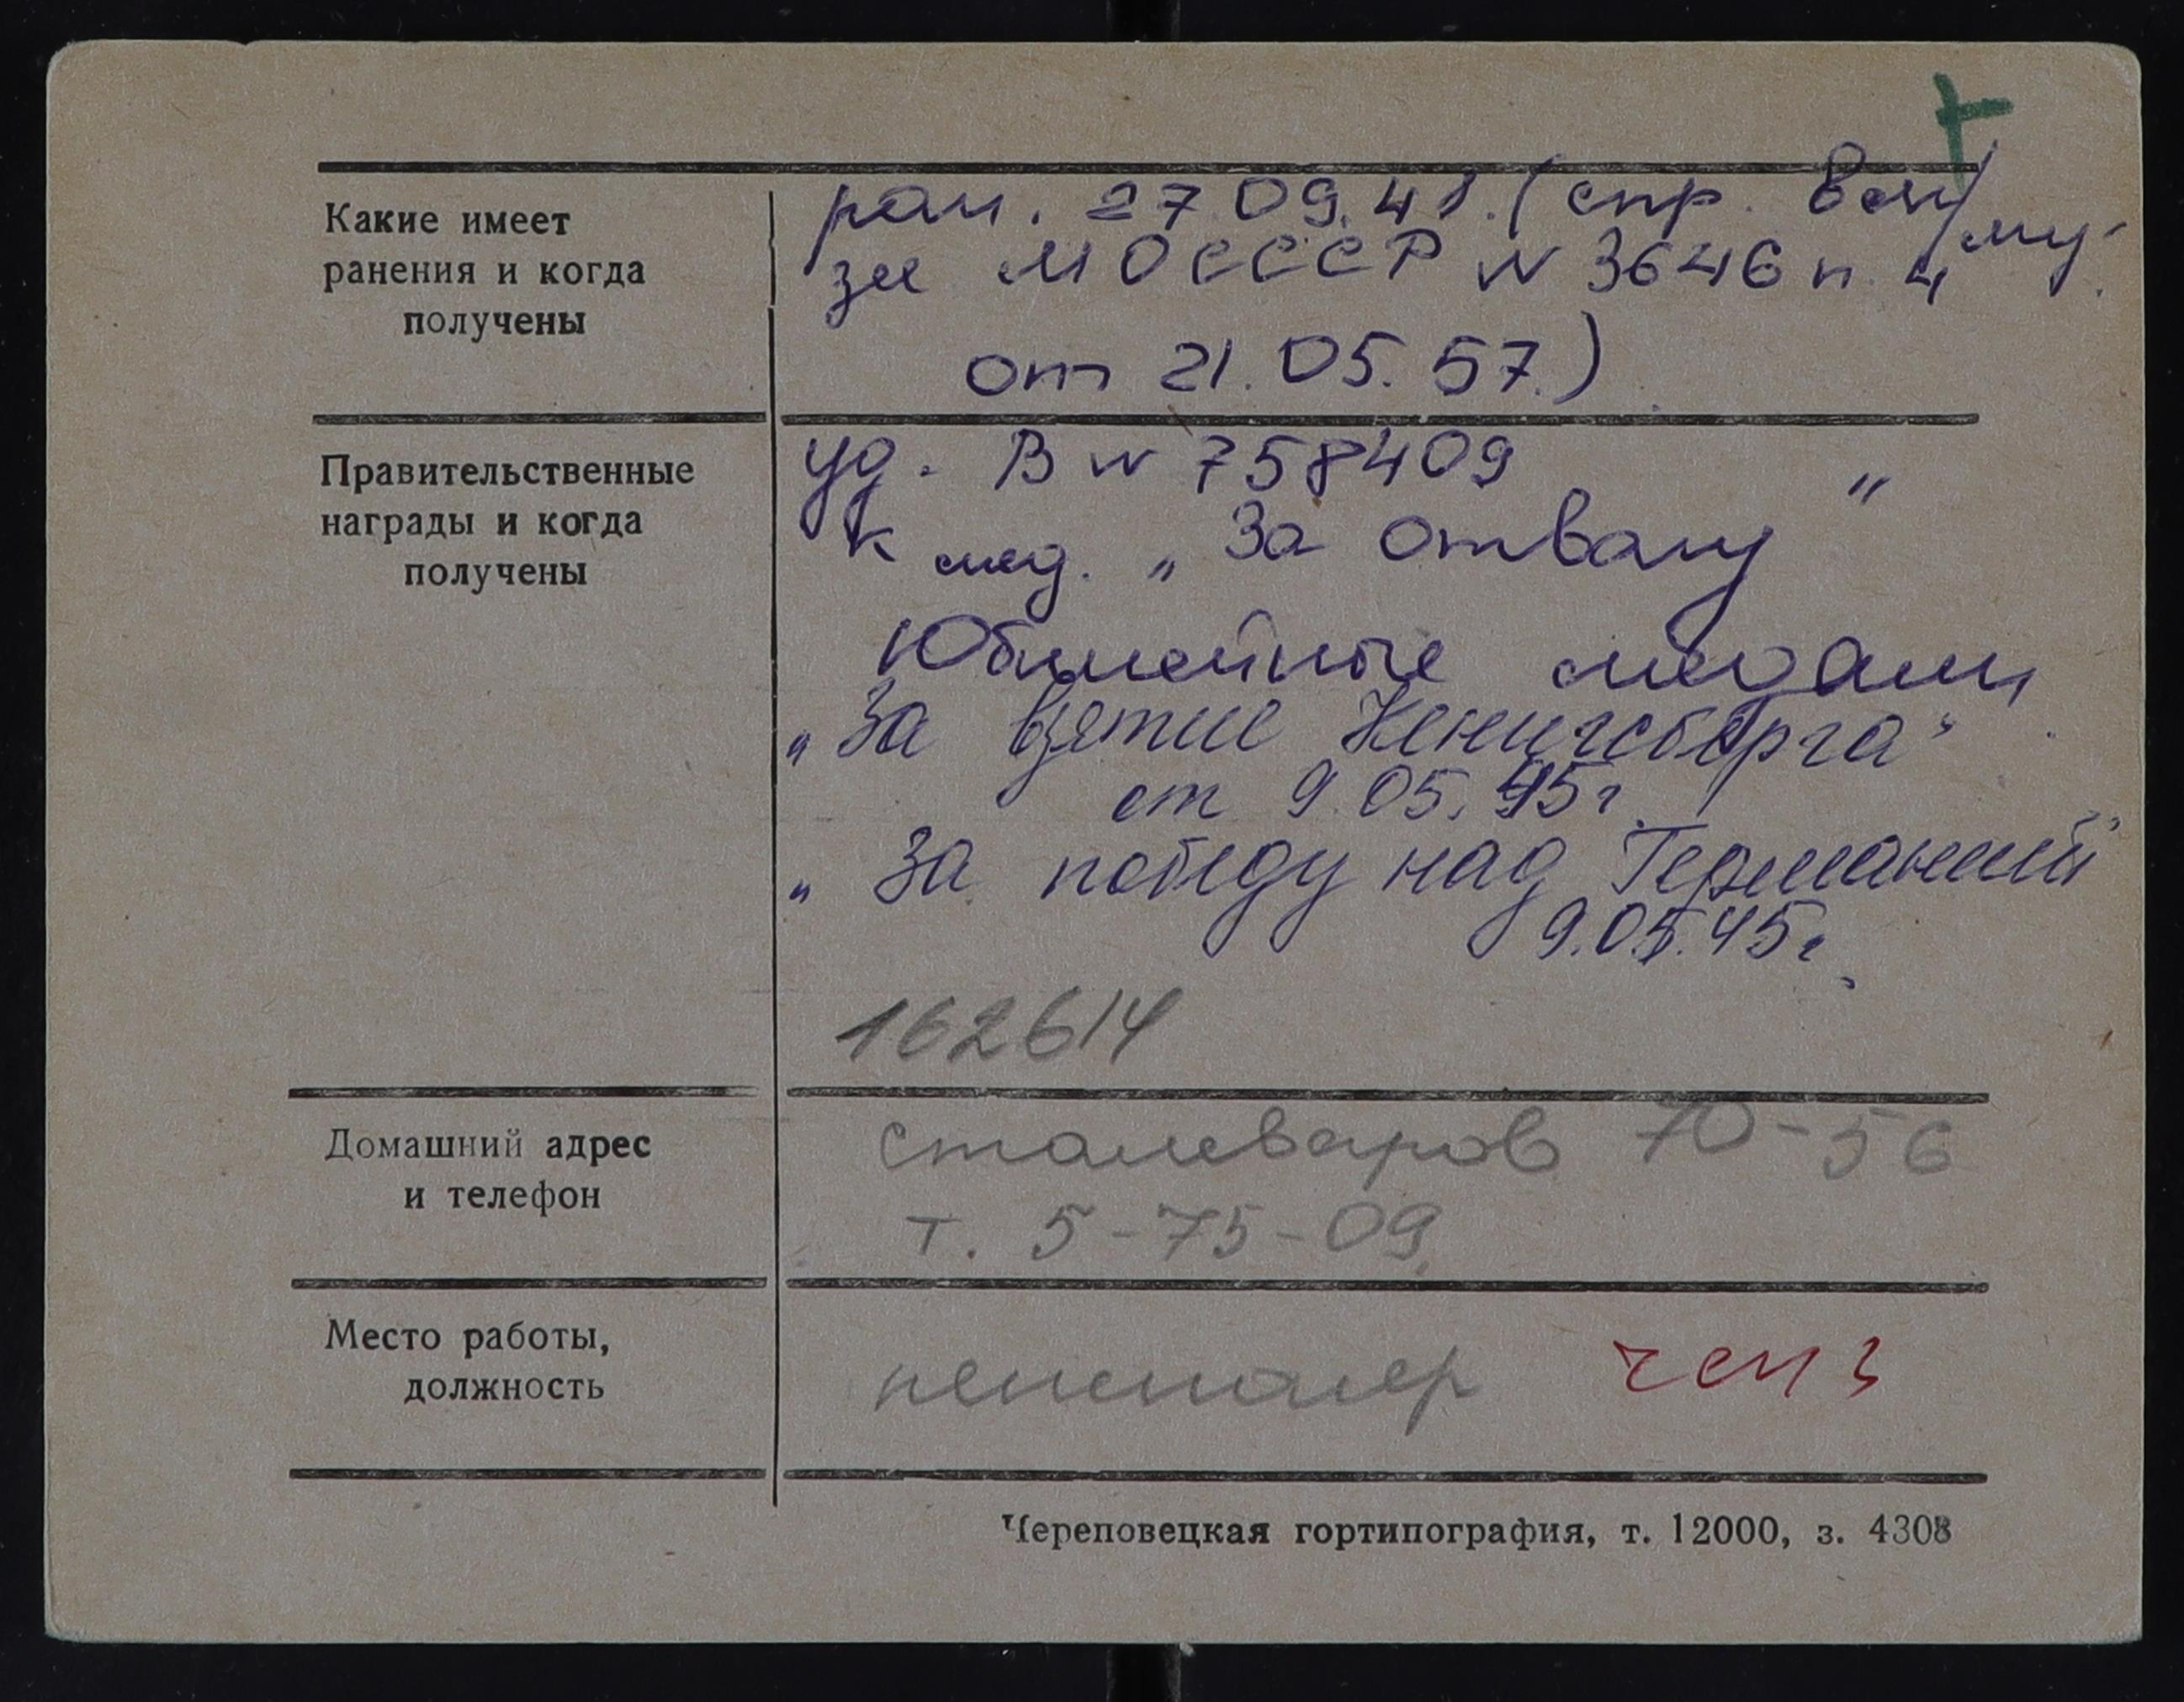 Какие имеет
ранения и когда
получены
ран. 27.09.41. (спр. воен/му-
зея МО СССР N 3646 п. 4
от 21.05.57.)
Правительственные
награды и когда
получены
уд. В N 758409
к мед. „За отвагу"
Юбилейные медали
„За взятие Кенигсберга"
от 9.05.45г.
„За победу над Германией"
9.05.45г.
162614
Домашний адрес
и телефон
Сталеваров 70-56
т. 5-75-09.
Место работы,
должность
пенсионер
Череповецкая гортипография, т. 12000, з. 4308